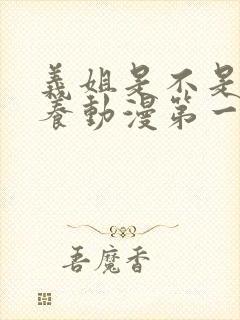 義姐是不是
養動漫第一
吾魔香